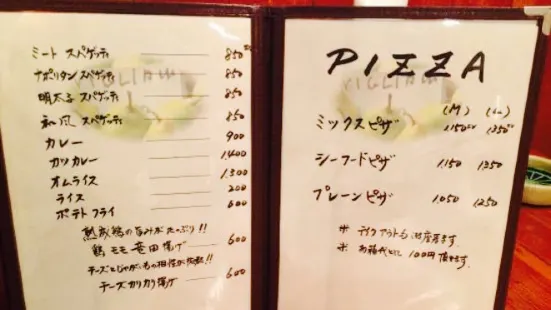 ミート スパゲッティ 850
ナポリタン スパゲッティ 850
明太子 スパゲッティ 850
和風 スパゲッティ 850
カレー 900
カツカレー 1,400
オムライス 1,300
ライス 200
ポテトフライ 600
熟成鶏の旨みがたっぷり!!
鶏モモ竜田揚げ 600
チーズとじゃがいもの相性が抜群!!
チーズカリカリ揚げ 600
PIZZA
(M) (L)
ミックスピザ 1,150 1,350
シーフードピザ 1,150 1,350
プレーンピザ 1,050 1,250
※ テイクアウトも出来ます。
※ お箱代として 100円頂きます。